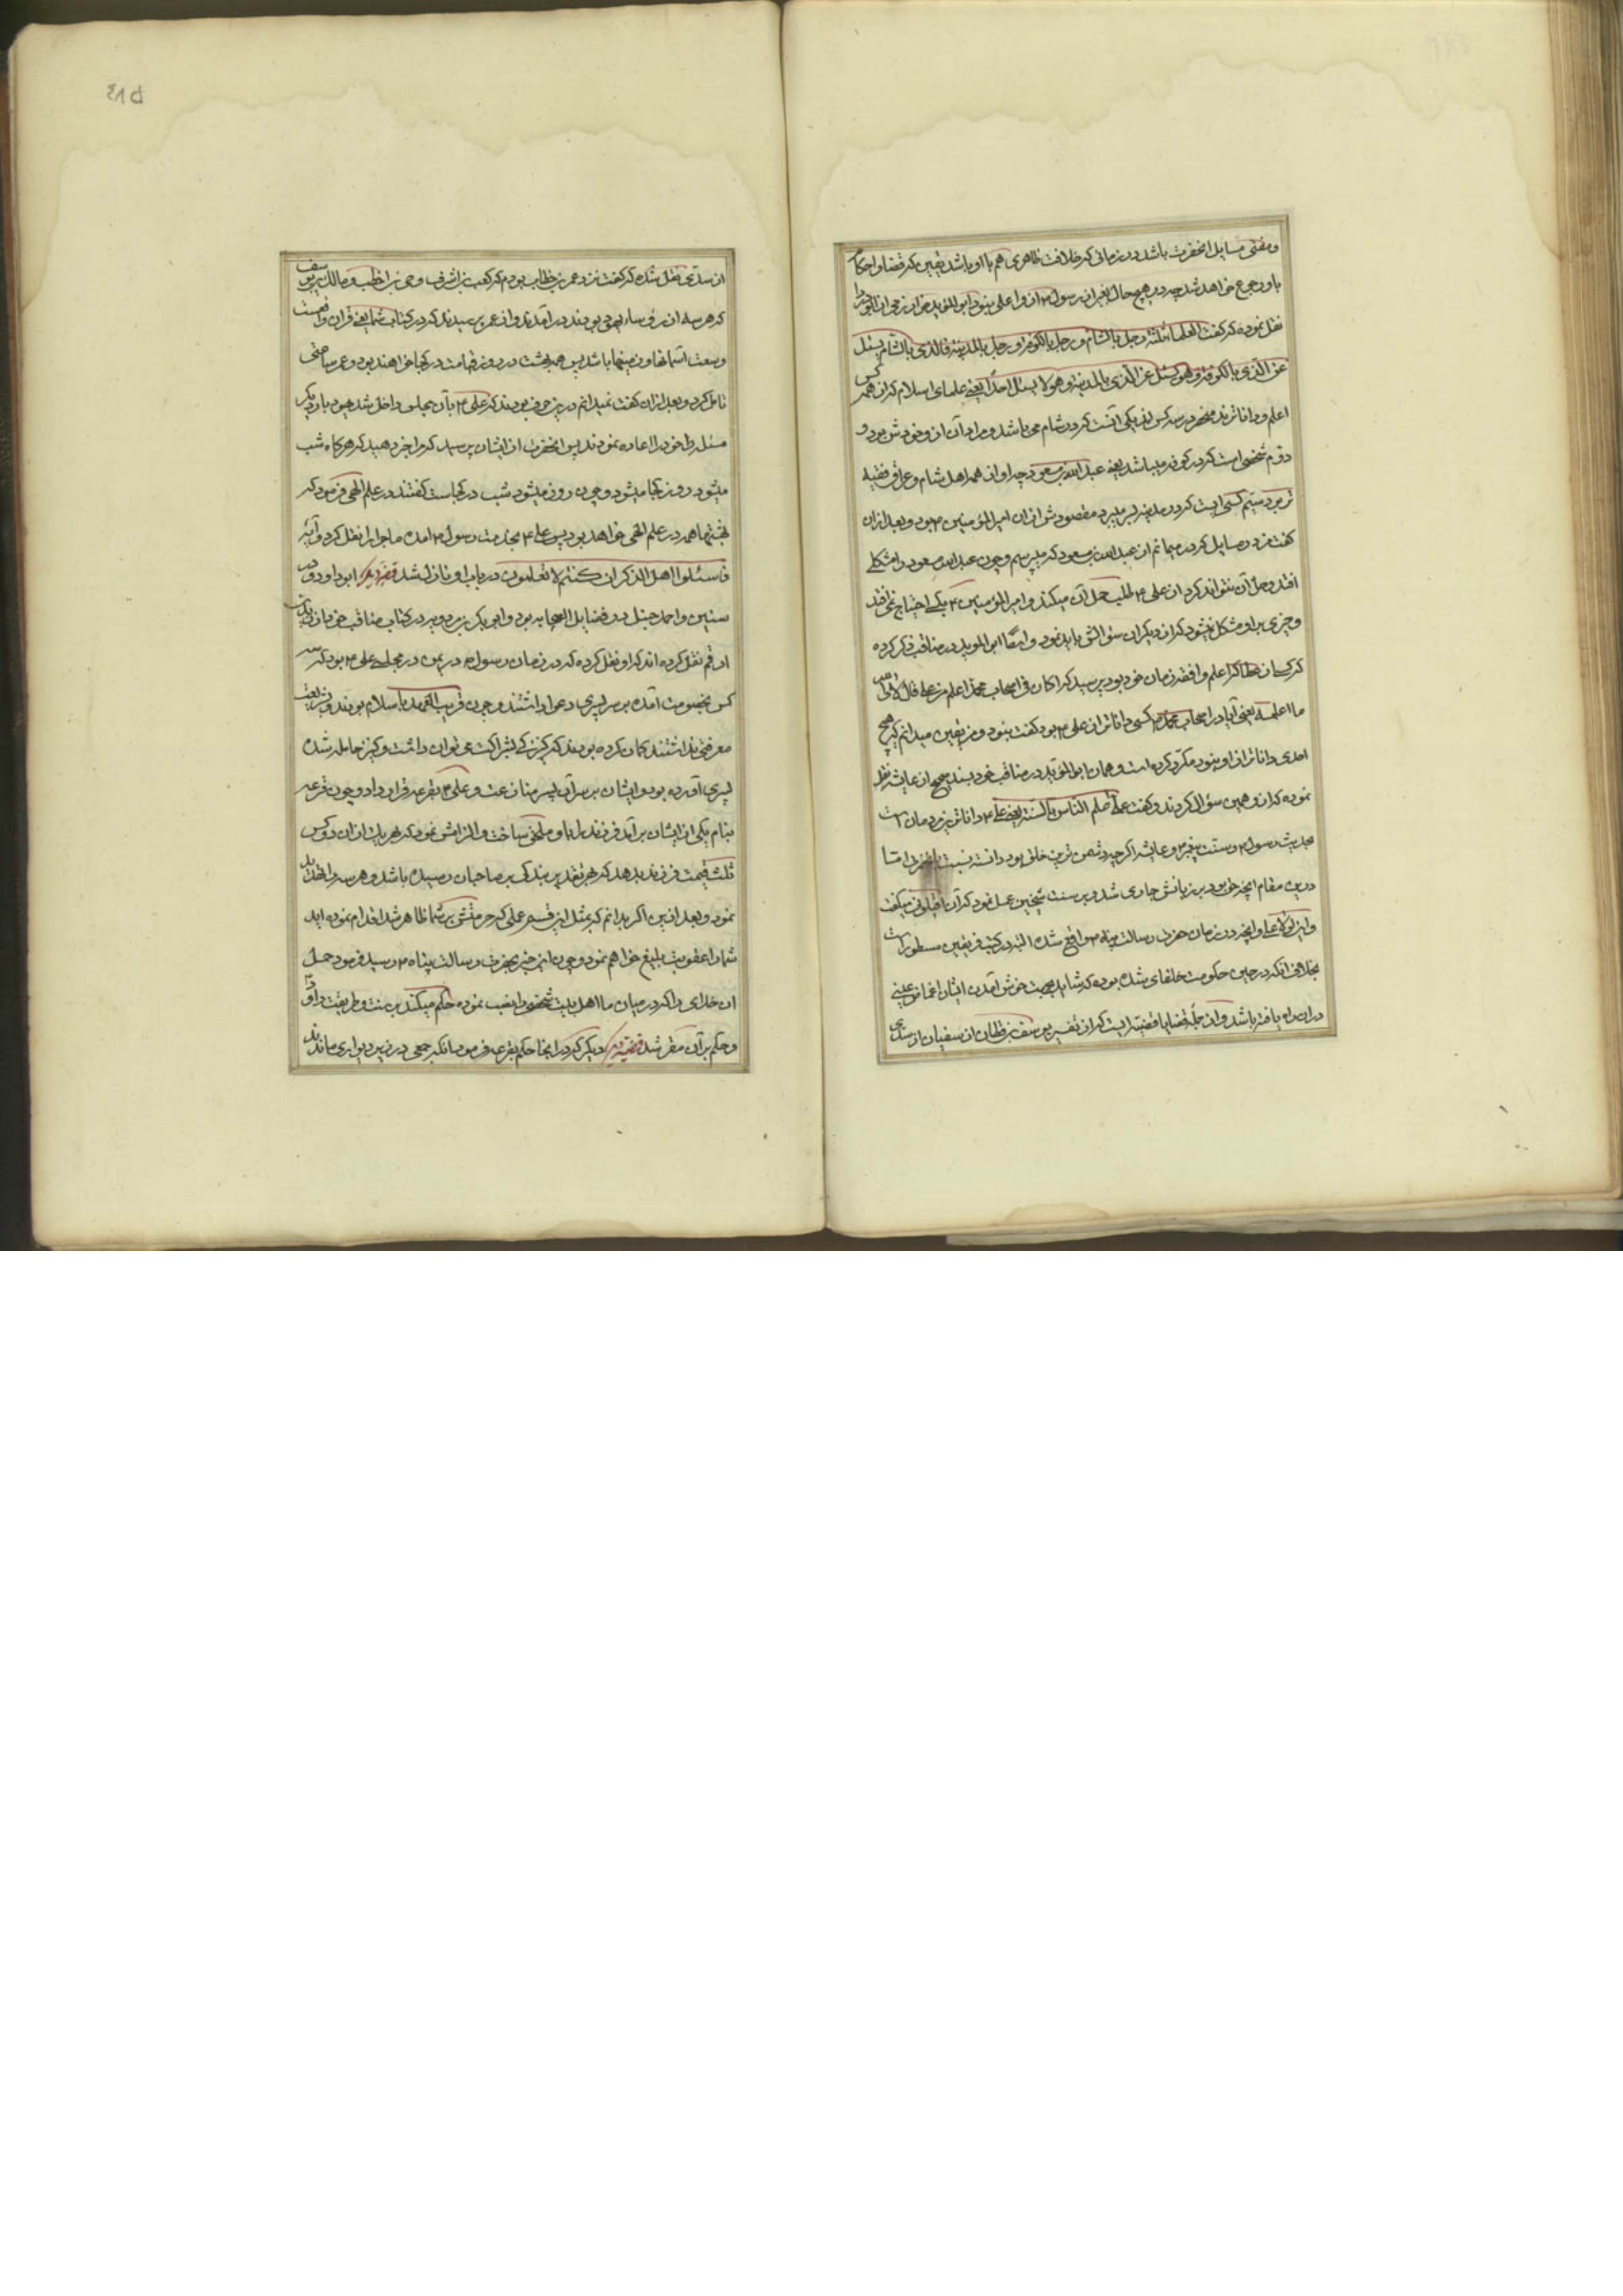 ومفتی مسایل انحضرت باشد در زمانی که خلافت ظاهری هم با او باشد یقین که قضا و احکام
باو رجوع خواهد شد چه در هیچ حال بغیر از رسول م از او اعلمی نبود ابو المؤید خوارزمی از ابو دردا
نقل نموده که گفت العلماء ثلثة رجل بالشام و رجل بالکوفة و رجل بالمدینة فالذی بالشام یسئل
عن الذی بالکوفة وهو یسئل عن الذی بالمدینة وهو لا یسئل احدا یعنی علمای اسلام که از همه کس
اعلم و داناترند منحصر در سه کس اند یکی آنست که در شام می باشد و مراد آن از و خودش بود و
دوم شخصی است که در کوفه میباشد یعنی عبد الله بن مسعود چه او از همه اهل شام و عراق فقیه
تر بود سیم کسی است که در مدینه بسر میبرد مقصودش ازان امیر المؤمنین م بود و بعد ازان
گفت مرد در مسایل که درمیمانم از عبد الله بن مسعود که میپرسم و چون عبد الله مسعود را مشکلی
افتد و حل آن نتواند کرد از علی م طلب حل آن میکند و امیر المؤمنین م بکسی احتیاج نمی افتد
و چیزی بر او مشکل نمیشود که از دیگران سئوالش باید نمود و ایضا ابو المؤید در مناقب ذکر کرده
که کسی از عطا که اعلم و افقه زمان خود بود پرسید که اکان فی اصحاب محمد اعلم من علی قال لا والله
ما اعلمه یعنی آیا در اصحاب محمد م کسی داناتر از علی م بود گفت نبود و من یقین میدانم که هیچ
احدی داناتر از او نبود مکرر کرده است و همان ابو المؤید در مناقب خود بسند صحیح از عایشه نقل
نموده که از و همین سؤال کردند و گفت علی اعلم الناس بالسنة یعنی علی م داناترین مردمان است
بحدیث رسول م و سنت پیغمبر م و عایشه اگرچه دشمن ترین خلق بود دانسته نسبت بانحضرت اما
درین مقام انچه حق بود بر زبانش جاری شد و بر سنت شیخین عمل نمود که آن اقیلونی میگفت
و این لولا علی و انچه در زمان حضرت رسالت پناه م واقع شده البته در کتب فریقین مسطور است
بخلاف انکه در حین حکومت خلفای ثلثه بوده که شاید بجهت خوش آمدن ایشان اغماض عینی
دران راه یافته باشد و از جمله قضایا قضیه ایست که از تفسیر یوسف بن قطان از سفیان از سدی
از سدی نقل شده که گفت نزد عمر بن خطاب بودم که کعب بن اشرف و حی بن اخطب و مالک بن صیف
که هر سه از رؤساء یهود بودند در آمدند و از عمر پرسیدند که در کتاب شما یعنی قران واقعست
وسعت آسمانها و زمینها باشد پس همه بهشت در روز قیامت در کجا خواهند بود و عمر ساعتی
تامل کرد و بعد ازان گفت نمیدانم درین حرف بودند که علی م بآن مجلس داخل شد یهود بار دیگر
مسئله خود را اعاده نمودند پس انحضرت از ایشان پرسید که مرا خبر دهید که هرگاه شب
میشود روز کجا میشود و چون روز میشود شب در کجاست گفتند در علم الهی فرمود که
بهشتها همه در علم الهی خواهد بود پس علی م بخدمت رسول م امده ماجرا را نقل کرد و آیه
فاسئلوا اهل الذکر ان کنتم لا تعلمون در باب او نازل شد قضیه دیگر ابو داود در
سنین و احمد حنبل در فضایل الصحابه بود و ابو بکر بن مردویه در کتاب مناقب خود از زید بن
ارقم نقل کرده اند که او نقل کرده که در زمان رسول م در یمن در مجلس علی م بود که سه
کس بخصومت آمده بر سر پسری دعوا داشتند و چون قریب العهد باسلام بودند و بشریعت
معرفتی نداشتند گمان کرده بودند که کنیزکی بشراکت می توان داشت و کنیز حامله شده
پسری آورده بود و ایشان بر سر آن پسر منازعت و علی م بقرعه قرار داد و چون قرعه
بنام یکی از ایشان بر آمد فرزند را باو ملحق ساخت و الزامش نمود که بهر یک از ان دو کس
ثلث قیمت فرزند بدهد که بهر تقدیر بندگی بر صاحبان رسیده باشد و هر سه را تهدید
نمود و بعد ازین اگر بدانم که بمثل این قسم عملی که حرمتش بر شما ظاهر شد اقدام نموده اید
شما را عقوبت بلیغ خواهم نمود و چون این خبر بحضرت رسالت پناه م رسید فرمود حمد
ان خدای را که در میان ما اهل بیت شخصی را نصب نموده حکم میکند بر سنت و طریقت داود
و حکم بر آن مقرر شد قضیه دیگر دیگر که در انجا حکم بقرعه فرمود انکه جمعی در زیر دیواری ماندند